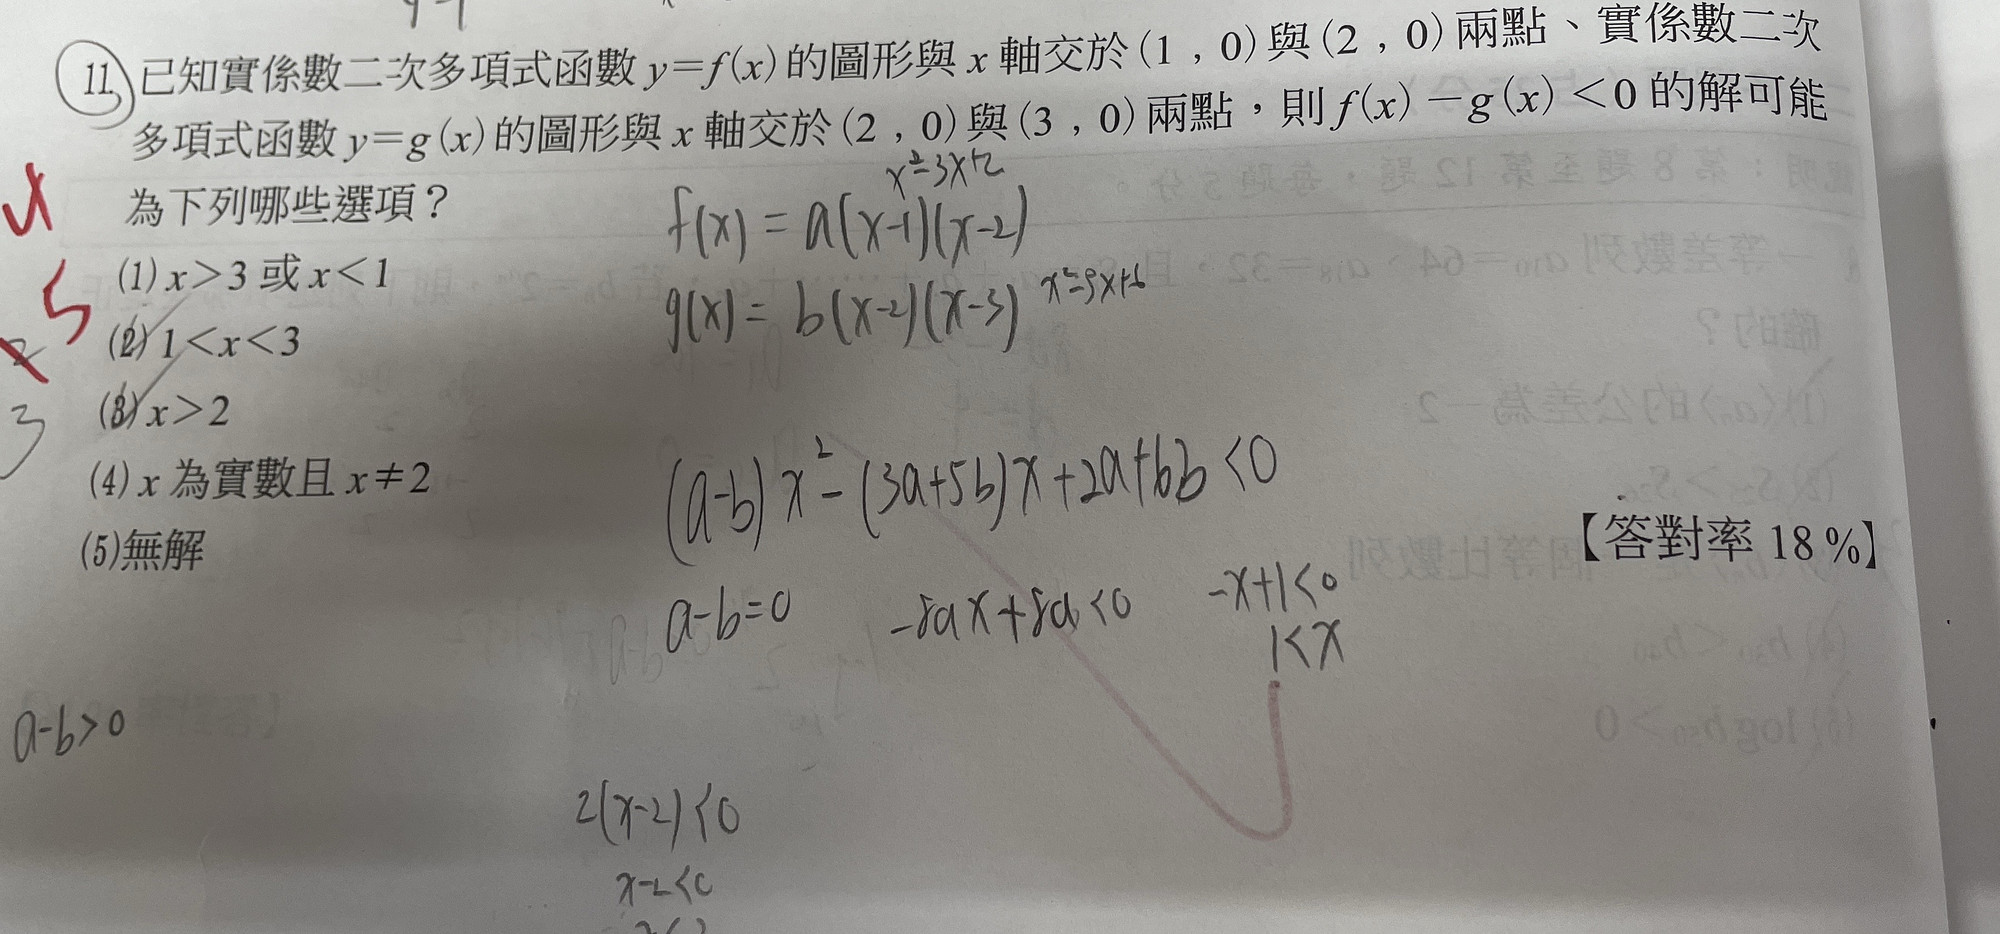 11. 已知實係數二次多項式函數 y=f(x) 的圖形與 x 軸交於 (1 , 0) 與 (2 , 0) 兩點、實係數二次
多項式函數 y=g(x) 的圖形與 x 軸交於 (2 , 0) 與 (3 , 0) 兩點，則 f(x)-g(x)<0 的解可能
為下列哪些選項？
(1) x>3 或 x<1
(2) 1<x<3
(3) x>2
(4) x 為實數且 x≠2
(5)無解
【答對率 18 %】
x²-3x+2
f(x) = a(x-1)(x-2)
g(x) = b(x-2)(x-3) x²-5x+6
(a-b)x² - (3a+5b)x+2a+6b<0
a-b=0
-8ax+8a<0
-x+1<0
1<x
a-b>0
2(x-2)<0
x-2<0
4
5
2
3